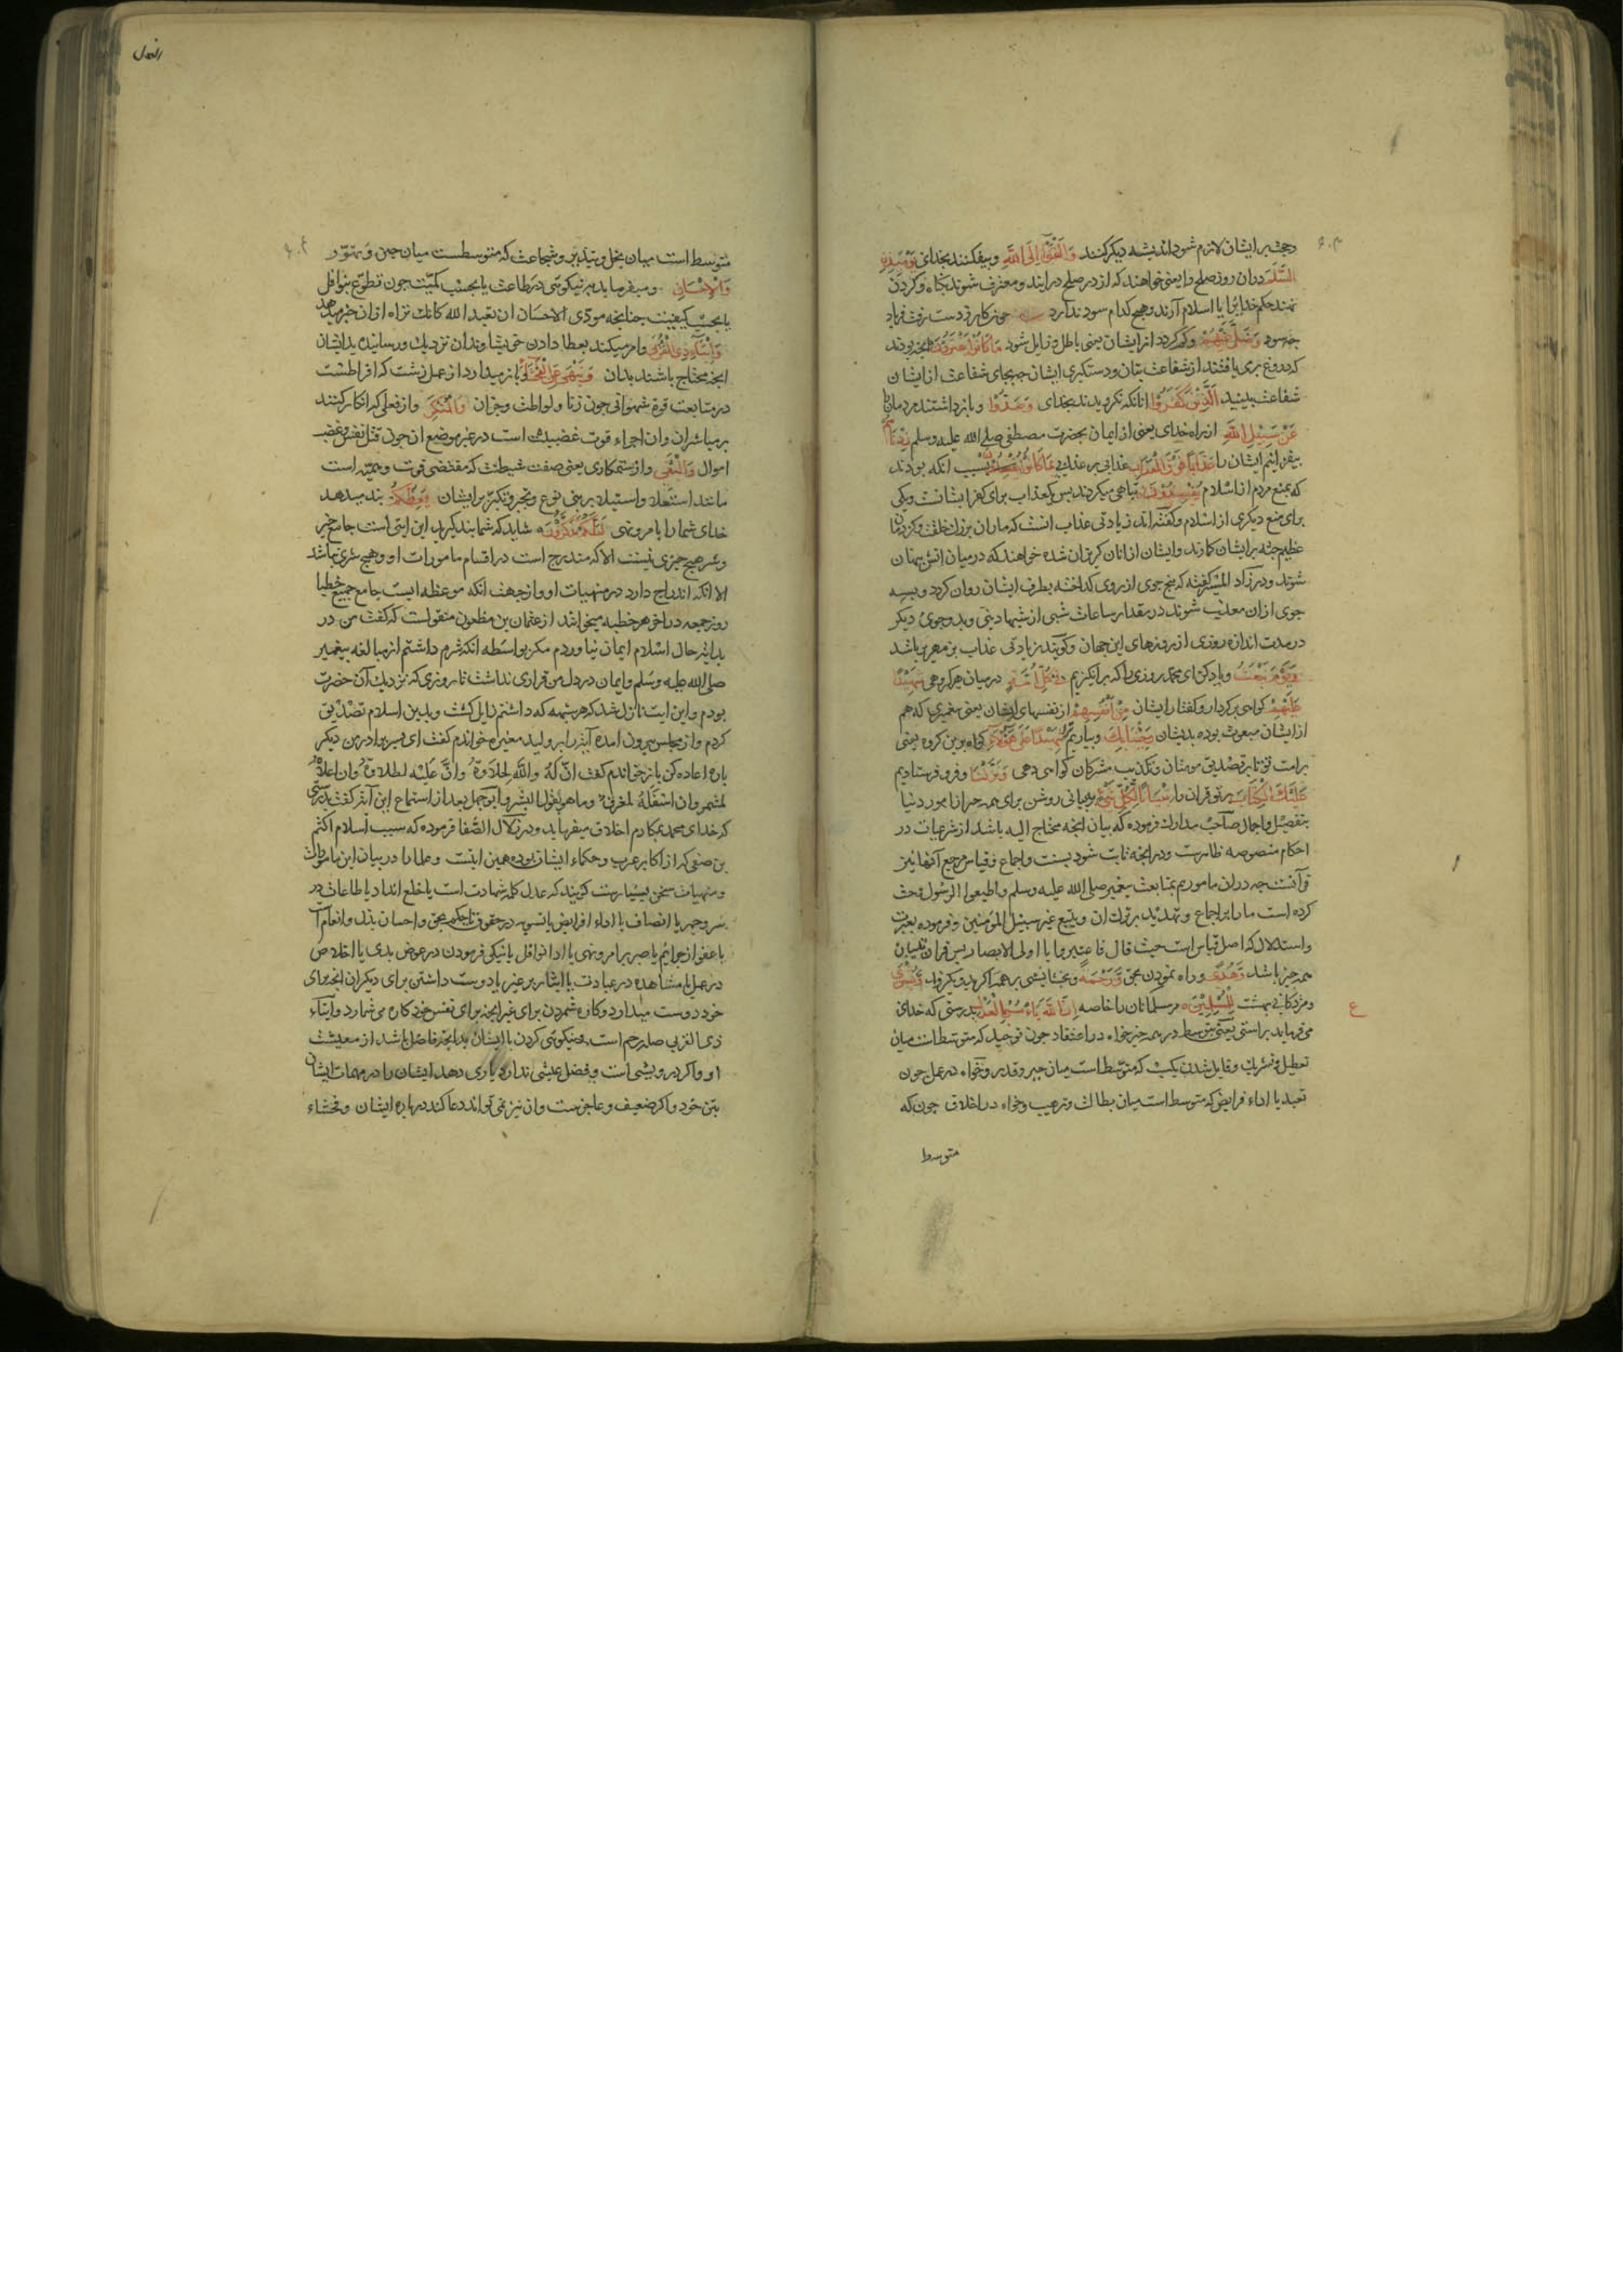 وحجت بر ایشان لازم شود اندیشه دیکر کنند وَاَلْقَوْا اِلَی اللّٰهِ وبیفکنند بخدای یَوْمَئِذٍ
السَّلَمَ دران روز صلح را یعنی خواهند که از در صلح درایند ومعترف شوند بکناه وکردن
نهند حکم خدایرا یا اسلام آرند وهیچ کدام سود ندارد چون کار ز دست رفت فریاد
چه سود وَضَلَّ عَنْهُمْ وکم کردد از ایشان یعنی باطل وزایل شود مَا کَانُوا یَفْتَرُونَ انچه بودند
که دروغ بری بافتند از شفاعت بتان ودستکیری ایشان چه بجای شفاعت از ایشان
شفاعت بینید اَلَّذِینَ کَفَرُوا انانکه نکرویدند بخدای وَصَدُّوا وبازداشتند مردمانرا
عَنْ سَبِیلِ اللّٰهِ از راه خدای یعنی از ایمان بحضرت مصطفی صلی الله علیه وسلم زِدْنَاهُمْ
بیفزائیم ایشان را عَذَابًا فَوْقَ الْعَذَابِ عذابی بر عذابی بِمَا کَانُوا یُفْسِدُونَ بسبب انکه بودند
که بمنع مردم از اسلام تباهی میکردند پس یک عذاب برای کفر ایشانست ویکی
برای منع دیکری از اسلام وکفته اند زیادتی عذاب انست که ماران بزرک خلقت وکژدمان
عظیم جثه بر ایشان کمارند وایشان ازانان کریزان شده خواهند که در میان اتش پنهان
شوند ودر زاد المسیر کفته که پنج جوی از روی کداخته بطرف ایشان روان کردد وبسه
جوی ازان معذب شوند در مقدار ساعات شبی از شبهاء دنیی وبدو جوی دیکر
در مدت اندازه روزی از روزهای این جهان وکویند زیادتی عذاب زمهریر باشد
وَیَوْمَ نَبْعَثُ ویاد کن ای محمد روزی را که برانکیزیم فِی کُلِّ اُمَّةٍ در میان هر کروهی شَهِیدًا
عَلَیْهِمْ کواهی بر کردار وکفتار ایشان مِنْ اَنْفُسِهِمْ از نفسهای ایشان یعنی پیغمبری که هم
از ایشان مبعوث بوده بدیشان وَجِئْنَا بِکَ وبیاریم ترا شَهِیدًا عَلٰی هٰؤُلَاءِ کواه برین کروه یعنی
بر امت تو تا بر تصدیق مومنان وتکذیب مشرکان کواهی دهی وَنَزَّلْنَا وفرو فرستادیم
عَلَیْکَ الْکِتَابَ بر تو قران را تِبْیَانًا لِکُلِّ شَیْءٍ بیانی روشن برای همه چیز از امور دنیا
بتفصیل واجمال صاحب مدارک فرموده که بیان انچه محتاج الیه باشد از شرعیات در
احکام منصوصه ظاهرست ودر انچه ثابت شود بسنت واجماع وقیاس مرجع آنها نیز
قرآنست چه دران ماموریم بمتابعت پیغمبر صلی الله علیه وسلم واطیعوا الرسول وحث
کرده است ما را بر اجماع وتهدید بر ترک ان ویتبع غیر سبیل المؤمنین وفرموده بعبرت
واستدلال که اصل قیاس است حیث قال فاعتبروا یا اولی الابصار پس قران تبیان
همه چیز باشد وَهُدًی وراه نمودن بحق وَرَحْمَةً وبخشایشی بر همه اکر بدو بکروند وَبُشْرٰی
ومژدکانی بهشت لِلْمُسْلِمِینَ مر مسلمانان را خاصه اِنَّ اللّٰهَ یَأْمُرُ بِالْعَدْلِ بدرستی که خدای
می فرماید براستی یعنی توسط در همه چیز خواه در اعتقاد چون توحید که متوسط است میان
تعطیل وتشریک وقایل شدن بکسب که متوسط است میان جبر وقدر وخواه در عمل چون
تعبد یا اداء فرایض که متوسط است میان بطالت وترهیب وخواه در اخلاق چون که
متوسط
النحل
متوسط است میان بخل وتبذیر وشجاعت که متوسطست میان جبن وتهور
وَالْاِحْسَانِ ومیفرماید بر نیکوئی در طاعت یا بحسب کمیت چون تطوع بنوافل
یا بحسب کیفیت چنانچه مودی الاحسان ان تعبد الله کانک تراه ازان خبر میدهد
وَاِیتَاءِ ذِی الْقُرْبٰی وامر میکند بعطا دادن خویشاوندان نزدیک ورسانیدن بدیشان
انچه محتاج باشند بدان وَیَنْهٰی عَنِ الْفَحْشَاءِ وباز میدارد از عمل زشت که افراطست
در متابعت قوة شهوانی چون زنا ولواطت وجزان وَالْمُنْکَرِ واز فعلی که انکار کنند
بر مباشر ان وان اجراء قوت غضبیه است در غیر موضع ان چون قتل نفس وغضب
اموال وَالْبَغْیِ واز ستمکاری یعنی صفت شیطنت که مقتضی قوت وهمیه است
مانند استعلا واستیلا بر بنی نوع وتجبر وتکبر بر ایشان یَعِظُکُمْ پند میدهد
خدای شما را بامر ونهی لَعَلَّکُمْ تَذَکَّرُونَ شاید که شما پند کیرید این ایتی است جامع خیر
وشر هیچ چیزی نیست الا که مندرج است در اقسام مامورات او وهیچ شری نباشد
الا انکه اندراج دارد در منهیات او واز جهت انکه موعظه ایست جامع جمیع خطبا
روز جمعه در اخر هر خطبه میخوانند از عثمان بن مظعون منقولست که کفت من در
بدایت حال اسلام ایمان نیاوردم مکر بواسطه انکه شرم داشتم از مبالغه پیغمبر
صلی الله علیه وسلم وایمان در دل من قراری نداشت تا روزی که نزدیک آن حضرت
بودم واین ایت نازل شد که هر شبهه که داشتم زایل کشت وبدین اسلام تصدیق
کردم واز مجلس بیرون امده آیت را بر ولید مغیره خواندم کفت ای پسر برادر من دیکر
باره اعاده کن باز خواندم کفت انّ له والله لحلاوة وانّ علیه لطلاوة وان اعلاه
لمثمر وان اسفله لمغرق وما هو بقول البشر وابو جهل بعد از استماع این آیت کفت بدرستی
که خدای محمد بمکارم اخلاق میفرماید ودر زلال الصفا فرموده که سبب اسلام اکثم
بن صیفی که از اکابر عرب وحکماء ایشان بوده همین ایتست وعلما را در بیان این مامورات
ومنهیات سخن بسیارست کویند که عدل کلمه شهادت است یا خلع انداد یا طاعات در
سر وجهر یا انصاف یا اداء افرایض یا تسویه در حقوق تا حکم بحق واحسان بذل وانعام
یا عفو از جرائم یا صبر بر امر ونهی یا ادا نوافل یا نیکی فرمودن در عوض بدی یا اخلاص
در عمل یا مشاهده در عبادت یا ایثار بر غیر یا دوست داشتن برای دیکران انچه برای
خود دوست میدارد وکاره شمردن برای غیر انچه برای نفس خود کاره می شمارد وایتاء
ذی القربی صله رحم است ونیکوئی کردن با ایشان بدانچه فاضل باشد از معیشت
او واکر درویشی است وفضل عیشی ندارد یاری دهد ایشان را در مهمات ایشان
بتن خود واکر ضعیف وعاجزست وان نیز نمی تواند دعا کند درباره ایشان وفحشاء